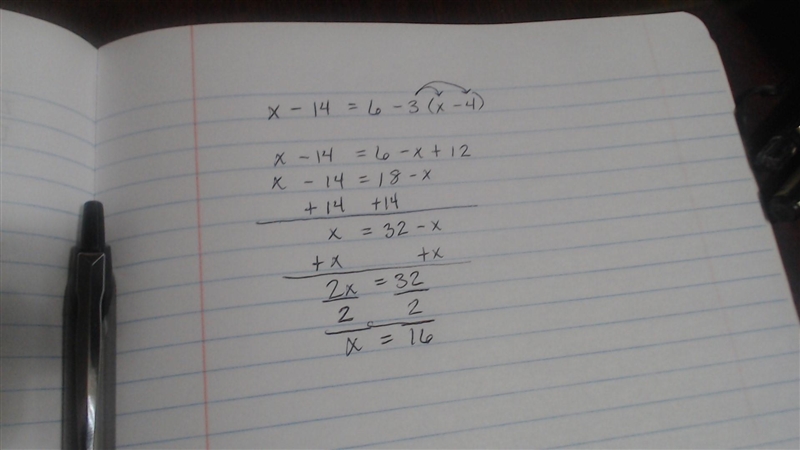 x - 14 = 6 - 3 (x - 4)
x - 14 = 6 - x + 12
x - 14 = 18 - x
+ 14 + 14
x = 32 - x
+ x + x
2x = 32
2 2
x = 16